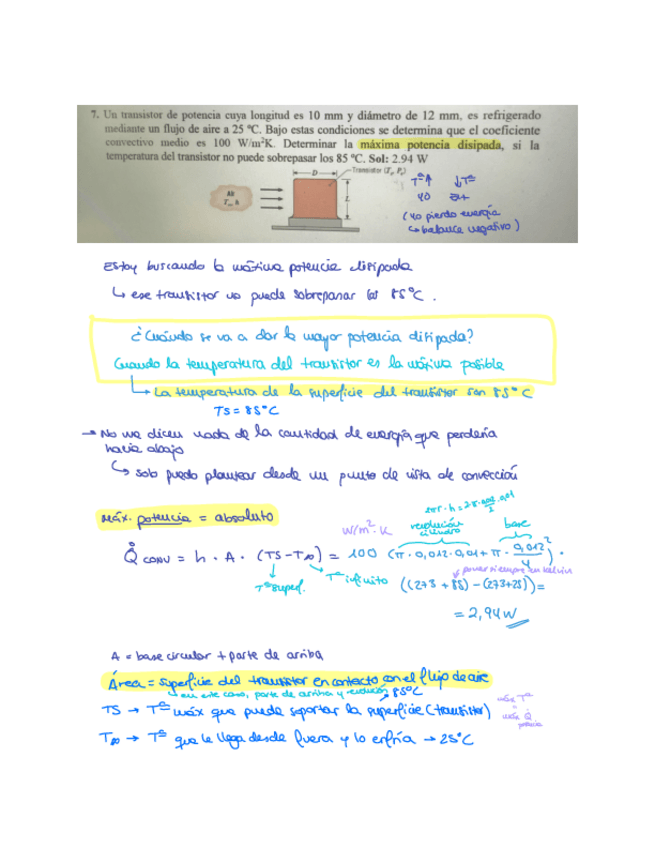 7. Un transistor de potencia cuya longitud es 10 mm y diámetro de 12 mm, es refrigerado
mediante un flujo de aire a 25 ºC. Bajo estas condiciones se determina que el coeficiente
convectivo medio es 100 W/m²K. Determinar la máxima potencia disipada, si la
temperatura del transistor no puede sobrepasar los 85 ºC. Sol: 2.94 W
D
Transistor (Ts, Ps)
Aire
T∞, h
L
Tª↑ ↓Tª
(yo pierdo energía
↳ balance negativo)
Estoy buscando la máxima potencia disipada
↳ ese transistor no puede sobrepasar los 85ºC.
¿Cuándo se va a dar la mayor potencia disipada?
Cuando la temperatura del transistor es la máxima posible
↳ La temperatura de la superficie del transistor son 85ºC
TS = 85ºC
→ No me dicen nada de la cantidad de energía que perdería
hacia abajo
↳ solo puedo plantear desde un punto de vista de convección
máx. potencia = absoluto
W/m²·K
revolución cilindro
base
Q̇conv = h · A · (TS - T∞) = 100 (π · 0,012 · 0,01 + π · 0,012²/4) ·
Tª superf.
Tª infinito
poner siempre en kelvin
((273 + 85) - (273+25)) =
= 2,94 W
A = base circular + parte de arriba
Área = superficie del transistor en contacto con el flujo de aire
→ en este caso, parte de arriba y revolución
85ºC
TS → Tª máx que puede soportar la superficie (transistor)
máx Tª
=
máx Q̇
potencia
T∞ → Tª que le llega desde fuera y lo enfría → 25ºC